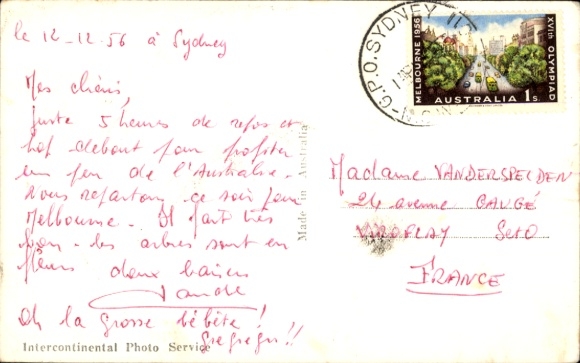 le 12-12.56 à Sydney
Mes chéris,
Juste 5 heures de repos et
hop debout pour profiter
un peu de l'Australie.
Nous repartons ce soir pour
Melbourne. Il fait très
bon. les arbres sont en
fleurs doux baisers
Oh la grosse bébête !
Intercontinental Photo Service
Made in Australia
G.P.O. SYDNEY
MELBOURNE 1956
XVIth OLYMPIAD
AUSTRALIA 1s.
Madame VANDERSPELDEN
24 avenue GAUGÉ
VIROFLAY S et O
FRANCE